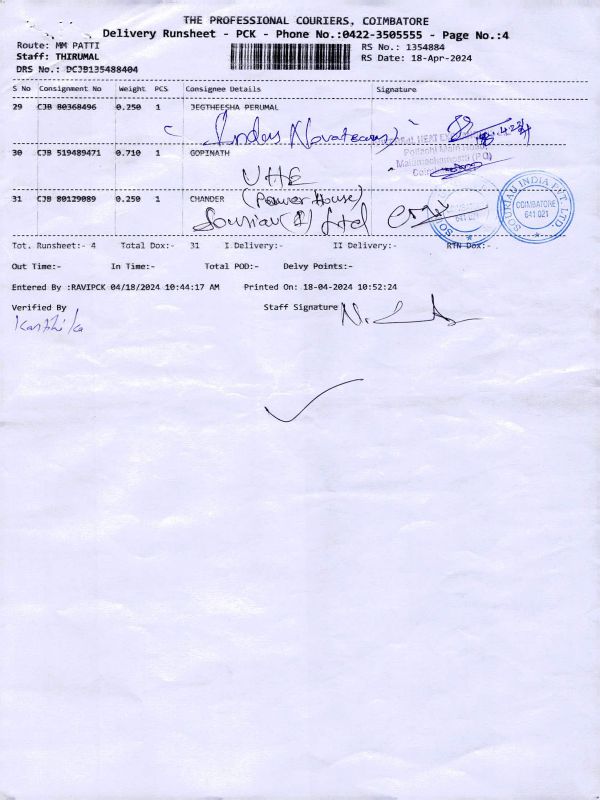 THE PROFESSIONAL COURIERS, COIMBATORE
Delivery Runsheet - PCK - Phone No.:0422-3505555 - Page No.:4
Route: MM PATTI
RS No.: 1354884
Staff: THIRUMAL
RS Date: 18-Apr-2024
DRS No.: DCJB135488404
S No Consignment No Weight PCS Consignee Details Signature
29 CJB 80368496 0.250 1 JEGTHEESHA PERUMAL
30 CJB 519489471 0.710 1 GOPINATH
UHE
31 CJB 80129089 0.250 1 CHANDER (Power House)
Souriau (I) Ltd
SOURIAU INDIA PVT. LTD
COIMBATORE
641 021
Tot. Runsheet:- 4 Total Dox:- 31 I Delivery:- II Delivery:- RTN Dox:-
Out Time:- In Time:- Total POD:- Delvy Points:-
Entered By :RAVIPCK 04/18/2024 10:44:17 AM Printed On: 18-04-2024 10:52:24
Verified By Staff Signature
Karthika